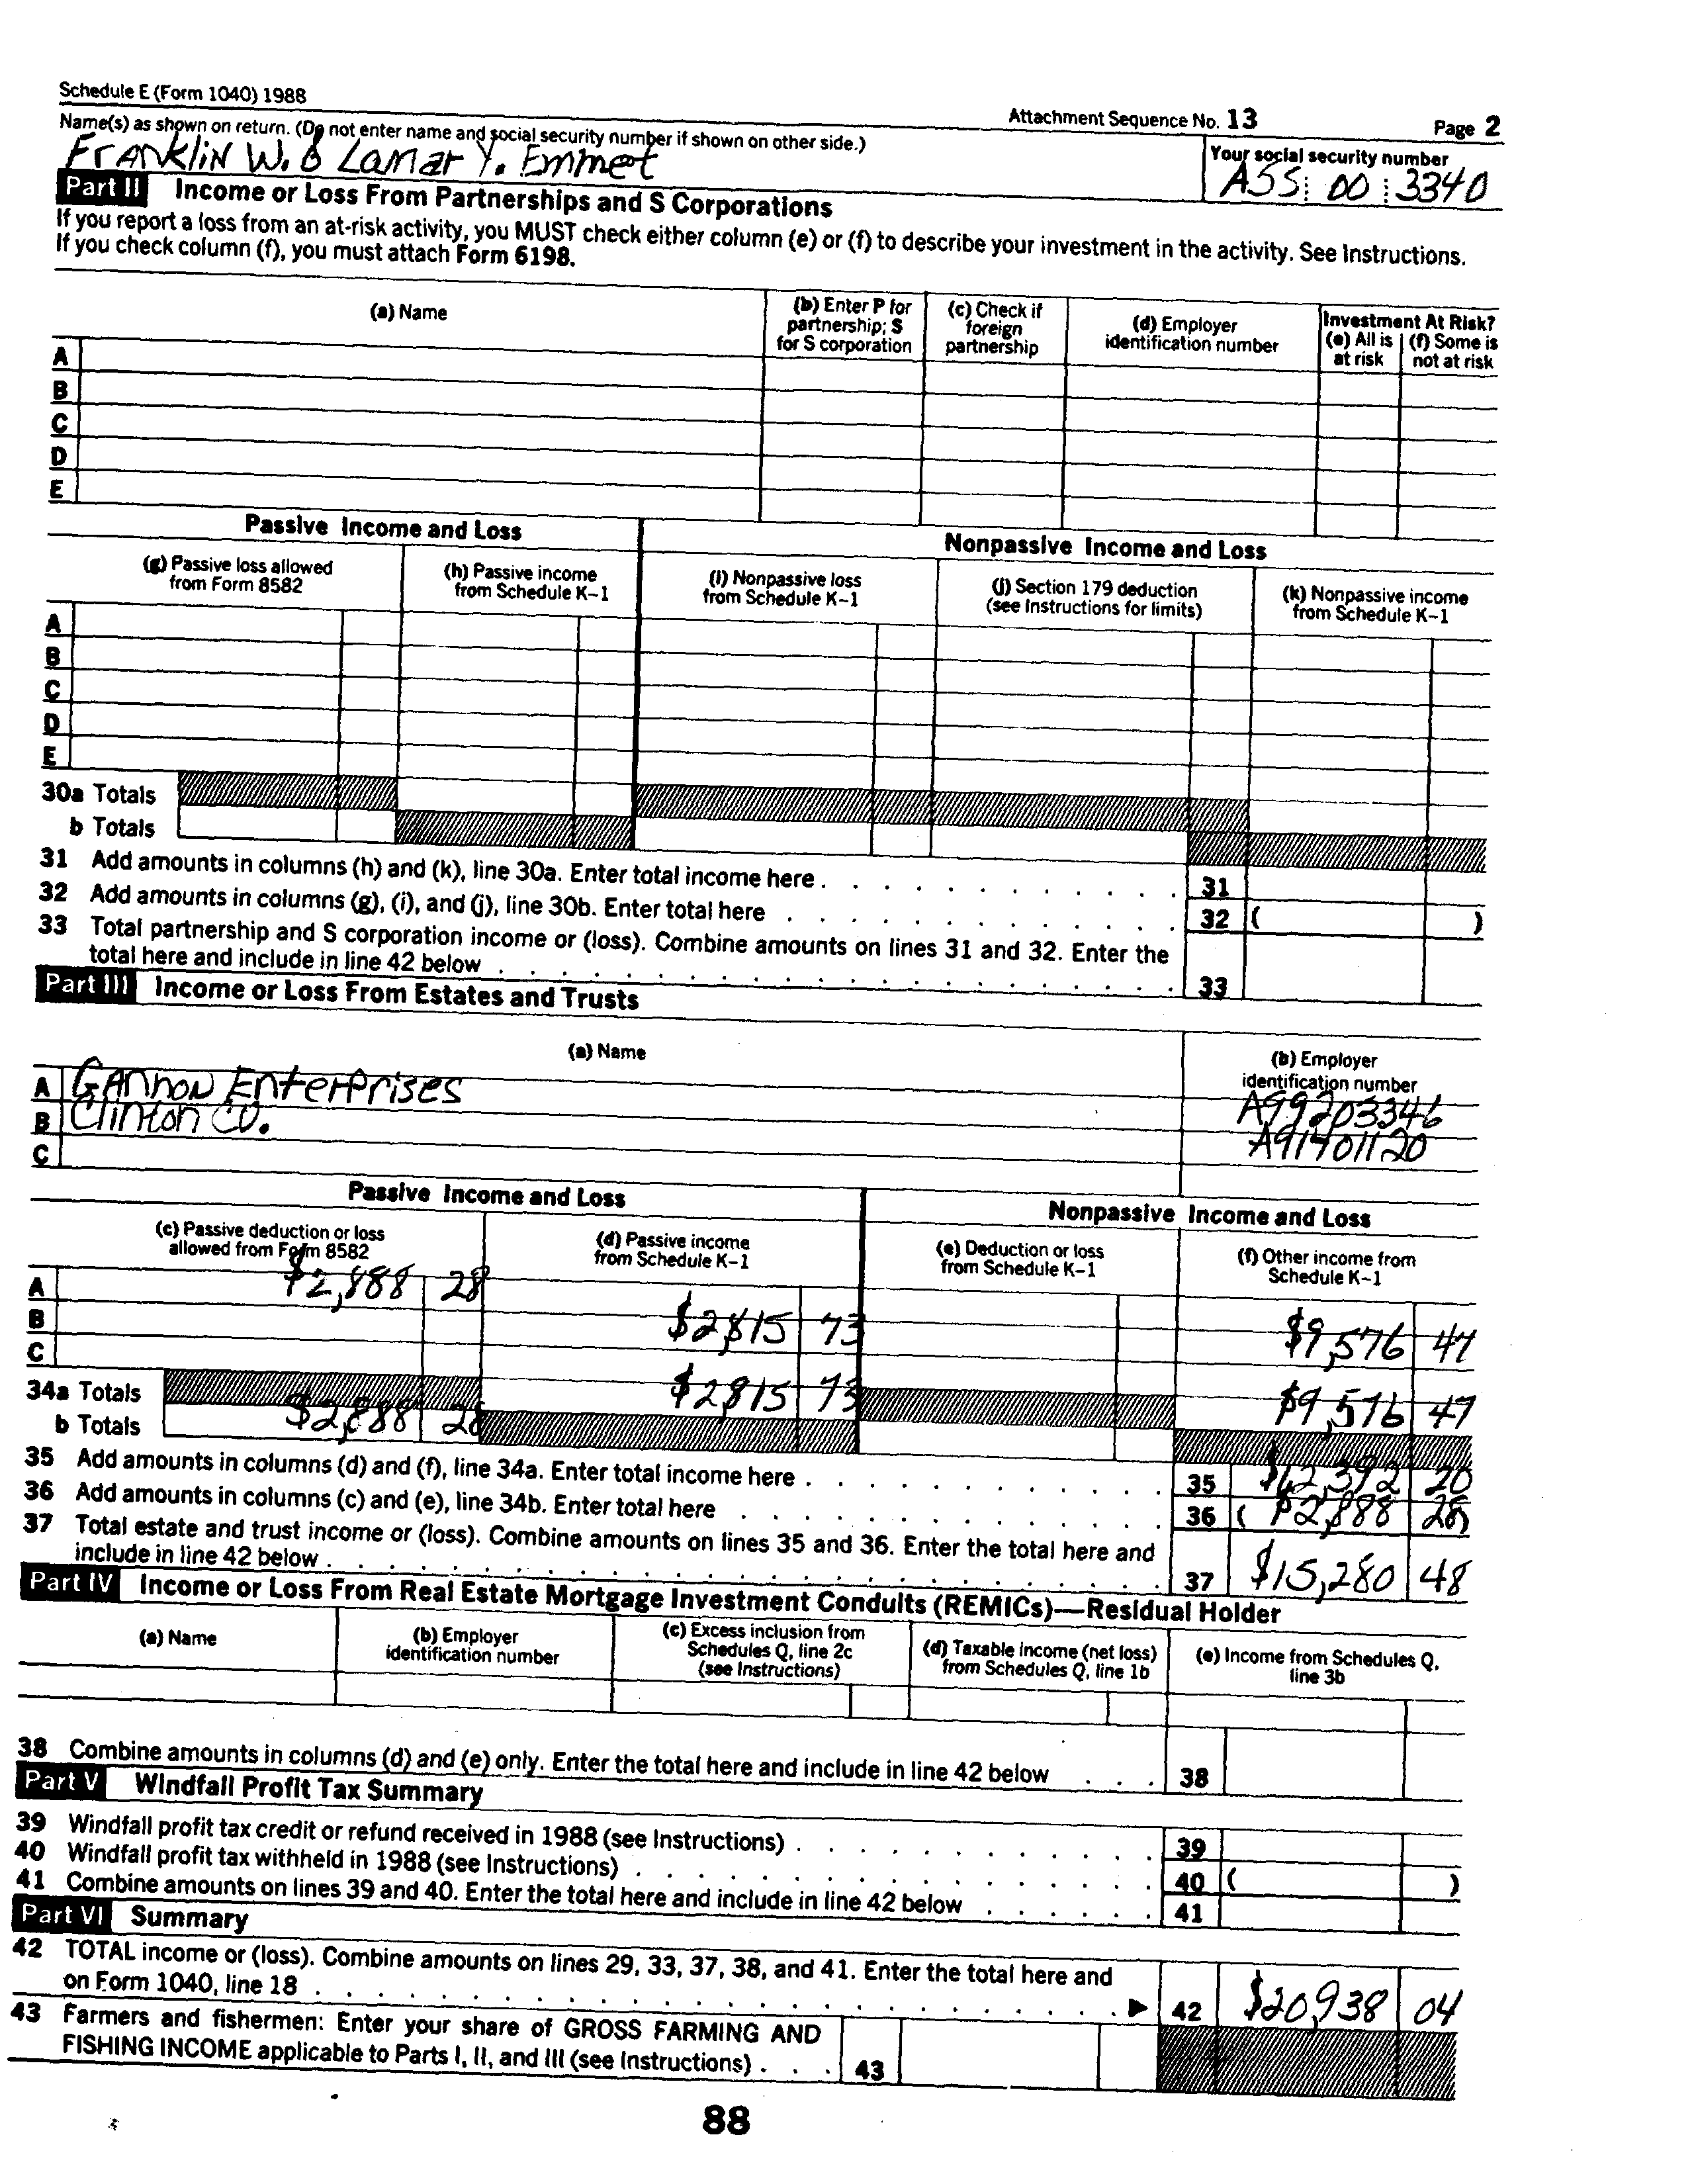 Schedule E (Form 1040) 1988
Attachment Sequence No. 13
Page 2
Name(s) as shown on return. (Do not enter name and social security number if shown on other side.)
Your social security number
Franklin W. & Lamar Y. Emmet
ASS 00 3340
Part II Income or Loss From Partnerships and S Corporations
If you report a loss from an at-risk activity, you MUST check either column (e) or (f) to describe your investment in the activity. See Instructions.
If you check column (f), you must attach Form 6198.
(a) Name
(b) Enter P for partnership; S for S corporation
(c) Check if foreign partnership
(d) Employer identification number
Investment At Risk?
(e) All is at risk
(f) Some is not at risk
A
B
C
D
E
Passive Income and Loss
Nonpassive Income and Loss
(g) Passive loss allowed from Form 8582
(h) Passive income from Schedule K-1
(i) Nonpassive loss from Schedule K-1
(j) Section 179 deduction (see Instructions for limits)
(k) Nonpassive income from Schedule K-1
A
B
C
D
E
30a Totals
b Totals
31 Add amounts in columns (h) and (k), line 30a. Enter total income here . . . . . . . . . . . . 31
32 Add amounts in columns (g), (i), and (j), line 30b. Enter total here . . . . . . . . . . . . . 32 ( )
33 Total partnership and S corporation income or (loss). Combine amounts on lines 31 and 32. Enter the
total here and include in line 42 below . . . . . . . . . . . . . . . . . . . . . . 33
Part III Income or Loss From Estates and Trusts
(a) Name
(b) Employer identification number
A Gannon Enterprises A99203346
B Clinton Co. A91401120
C
Passive Income and Loss
Nonpassive Income and Loss
(c) Passive deduction or loss allowed from Form 8582
(d) Passive income from Schedule K-1
(e) Deduction or loss from Schedule K-1
(f) Other income from Schedule K-1
A $2,888 28
B $2,815 73 $9,576 47
C
34a Totals $2,815 73 $9,576 47
b Totals $2,888 28
35 Add amounts in columns (d) and (f), line 34a. Enter total income here . . . . . . . . . . . . 35 $12,392 20
36 Add amounts in columns (c) and (e), line 34b. Enter total here . . . . . . . . . . . . . . 36 ( $2,888 28)
37 Total estate and trust income or (loss). Combine amounts on lines 35 and 36. Enter the total here and
include in line 42 below . . . . . . . . . . . . . . . . . . . . . . . . . . . 37 $15,280 48
Part IV Income or Loss From Real Estate Mortgage Investment Conduits (REMICs)—Residual Holder
(a) Name
(b) Employer identification number
(c) Excess inclusion from Schedules Q, line 2c (see Instructions)
(d) Taxable income (net loss) from Schedules Q, line 1b
(e) Income from Schedules Q, line 3b
38 Combine amounts in columns (d) and (e) only. Enter the total here and include in line 42 below . . . 38
Part V Windfall Profit Tax Summary
39 Windfall profit tax credit or refund received in 1988 (see Instructions) . . . . . . . . . . . . 39
40 Windfall profit tax withheld in 1988 (see Instructions) . . . . . . . . . . . . . . . . . 40 ( )
41 Combine amounts on lines 39 and 40. Enter the total here and include in line 42 below . . . . . . 41
Part VI Summary
42 TOTAL income or (loss). Combine amounts on lines 29, 33, 37, 38, and 41. Enter the total here and
on Form 1040, line 18 . . . . . . . . . . . . . . . . . . . . . . . . . . ▶ 42 $20,938 04
43 Farmers and fishermen: Enter your share of GROSS FARMING AND
FISHING INCOME applicable to Parts I, II, and III (see Instructions) . . . 43
88